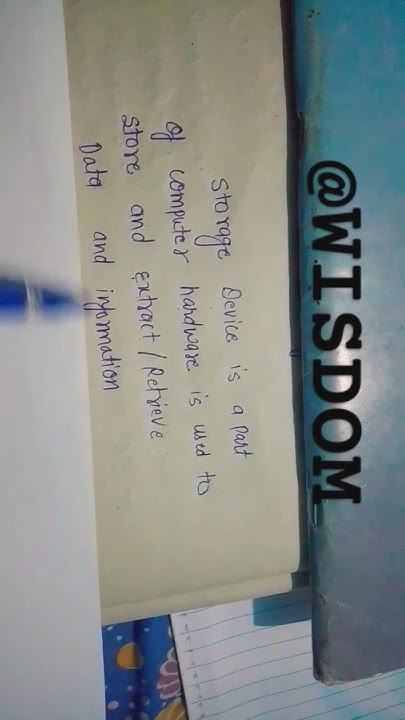 @WISDOM
Storage Device is a part
of computer hardware is used to
store and extract/Retrieve
Data and information